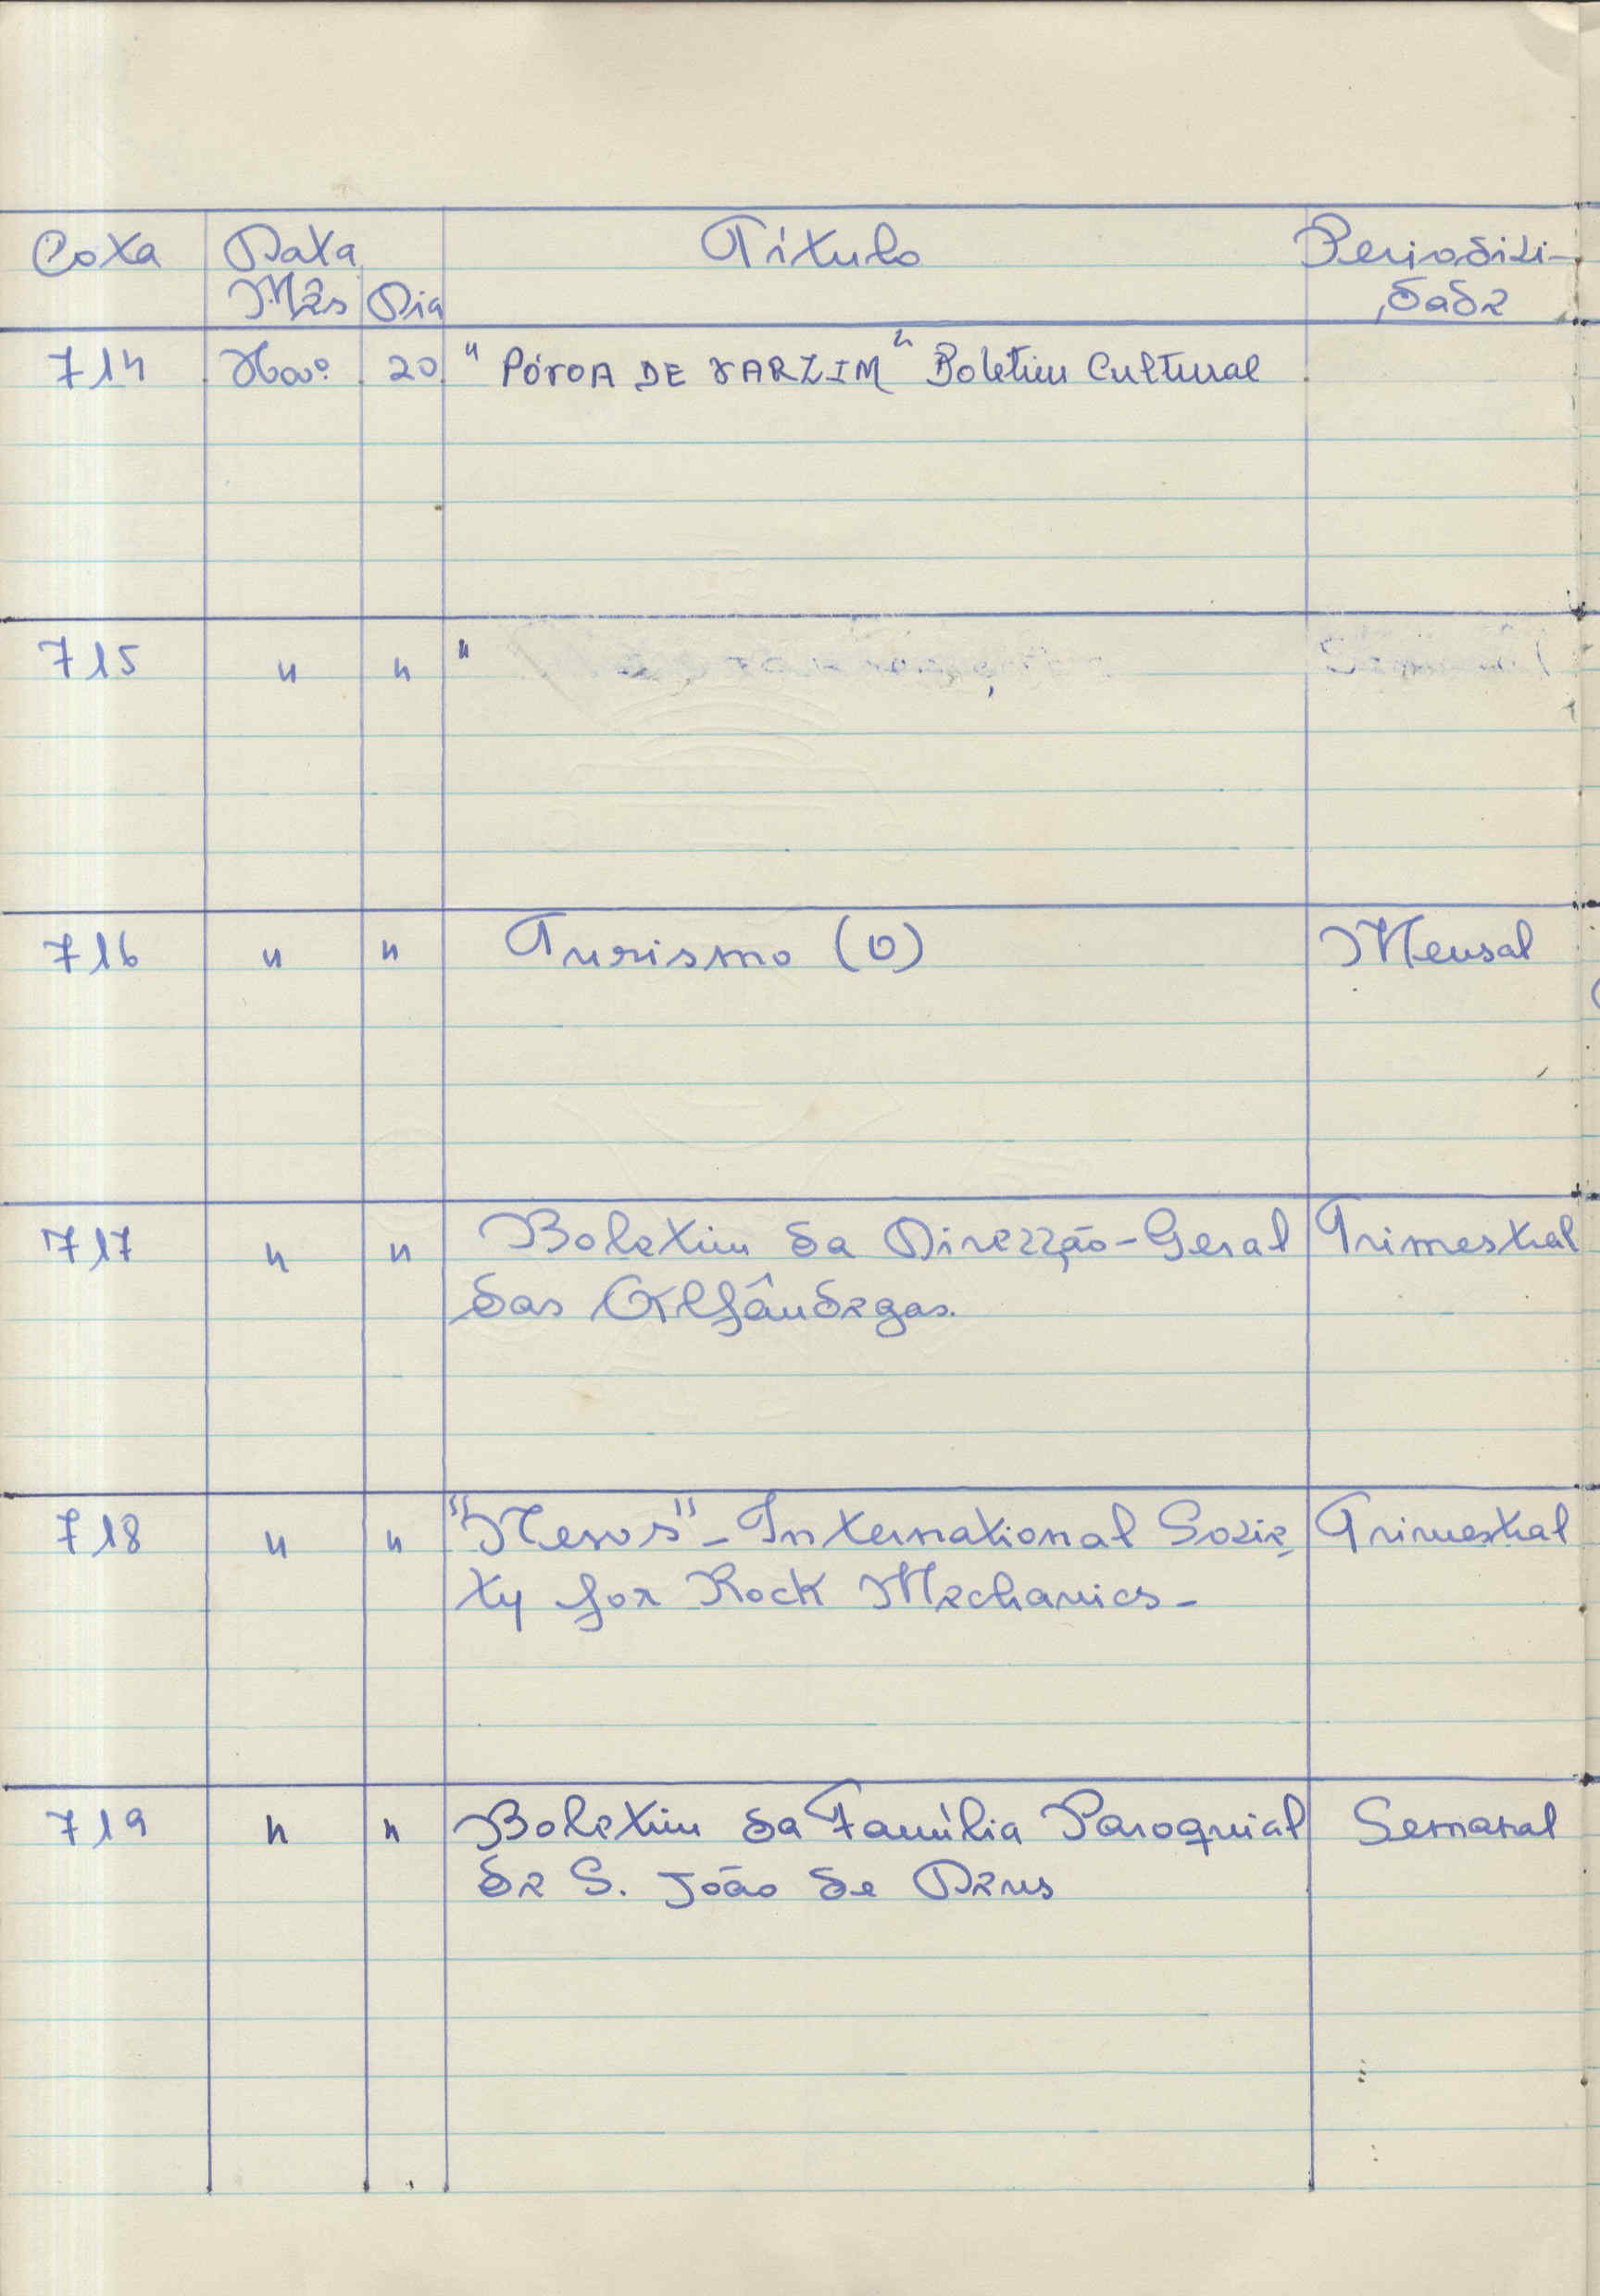 Cota Data Título Periodici-
Mês Dia dade
714 Nov.º 20 "PÓVOA DE VARZIM" Boletim Cultural
715 " " "
716 " " Turismo (O) Mensal
717 " " Boletim da Direcção-Geral Trimestral
das Alfândegas.
718 " " "News" - International Socie- Trimestral
ty for Rock Mechanics -
719 " " Boletim da Família Paroquial Semanal
de S. João de Deus